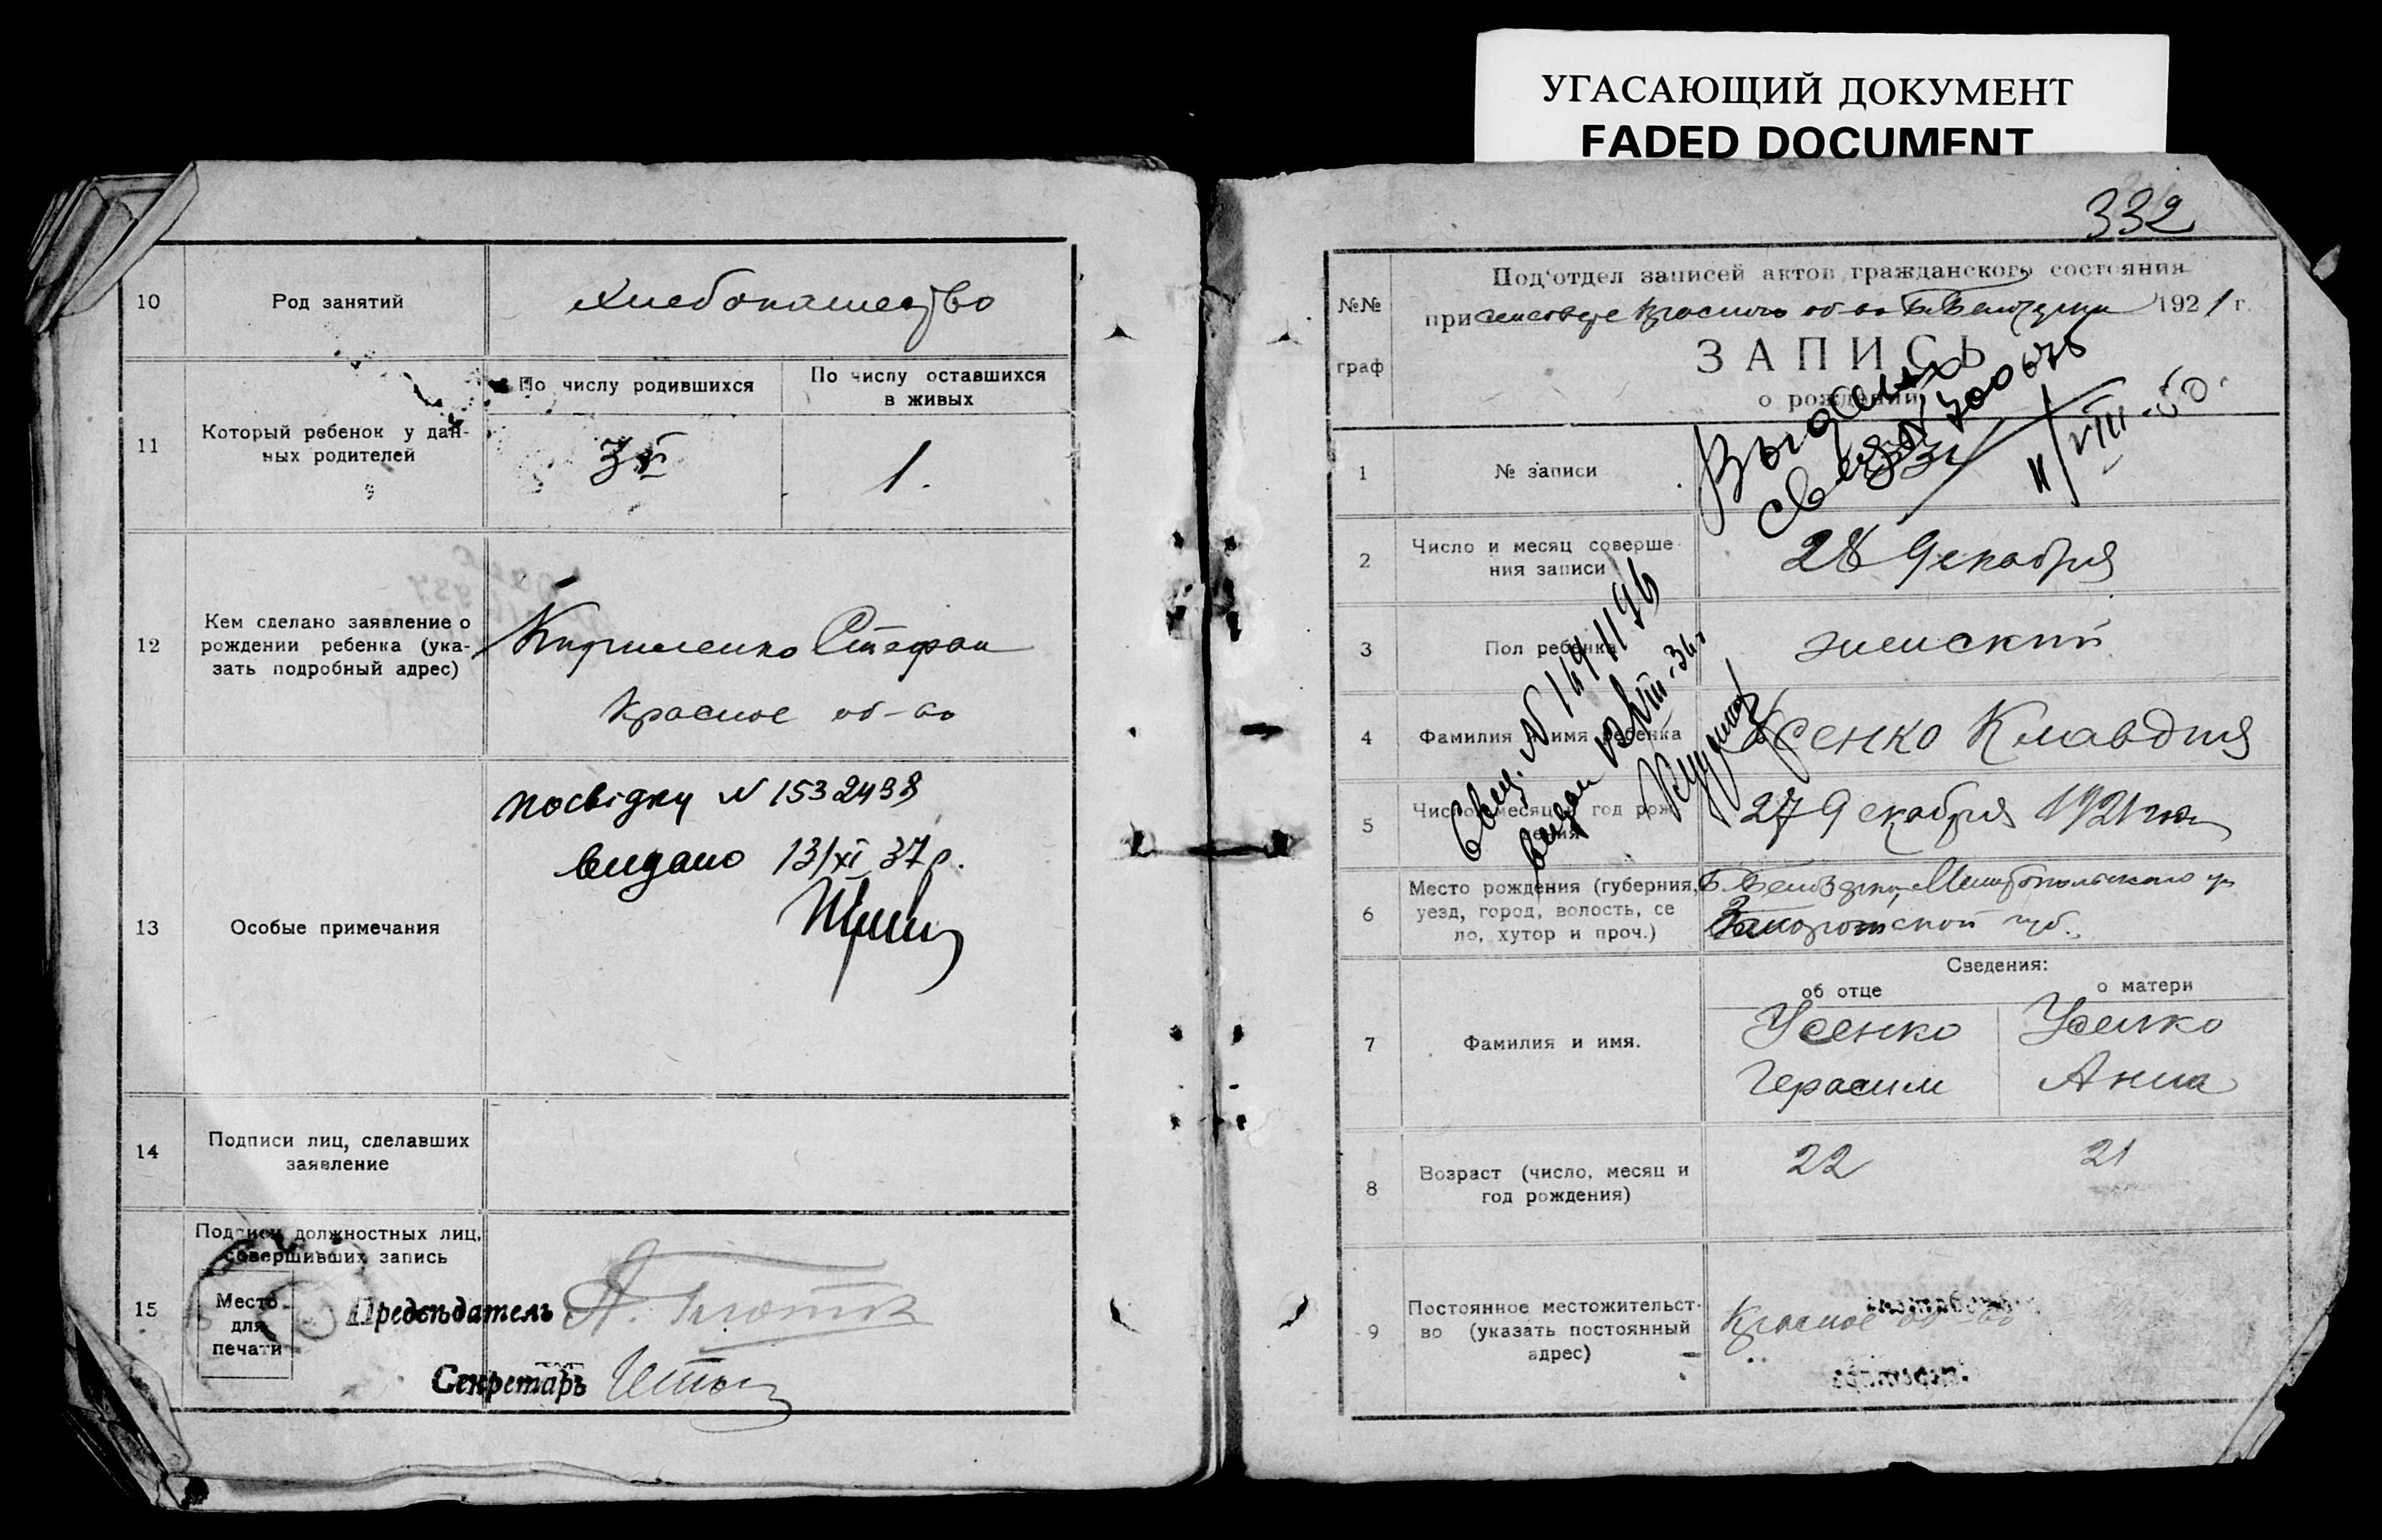 УГАСАЮЩИЙ ДОКУМЕНТ
FADED DOCUMENT
10
Род занятий
11
Который ребенок у дан-
ных родителей
По числу родившихся
По числу оставшихся
в живых
3й
1.
12
Кем сделано заявление о
рождении ребенка (ука-
зать подробный адрес)
Кириленко Стефан
Красное об-во
13
Особые примечания
посвідку N 1532438
видано 13/XI 37 р.
14
Подписи лиц, сделавших
заявление
15
Подписи должностных лиц,
совершивших запись
Место
для
печати
Председатель
Секретарь
332
№№
граф
Под'отдел записей актов гражданского состояния
при Красного об-ва 1921 г.
ЗАПИСЬ
о рождении
1
№ записи
Выдано
11/VIII-50
2
Число и месяц соверше-
ния записи
28 декабря
3
Пол ребенка
женский
4
Фамилия и имя ребенка
Усенко Клавдия
Свид. N
выдан
5
Число, месяц и год рож-
дения
27 декабря 1921 года
6
Место рождения (губерния,
уезд, город, волость, се
ло, хутор и проч.)
Б. Белозерка, Мелитопольского у.
Запорожской губ.
Сведения:
об отце
о матери
7
Фамилия и имя.
Усенко
Герасим
Усенко
Анна
8
Возраст (число, месяц и
год рождения)
22
21
9
Постоянное местожительст-
во (указать постоянный
адрес)
Красное об-во